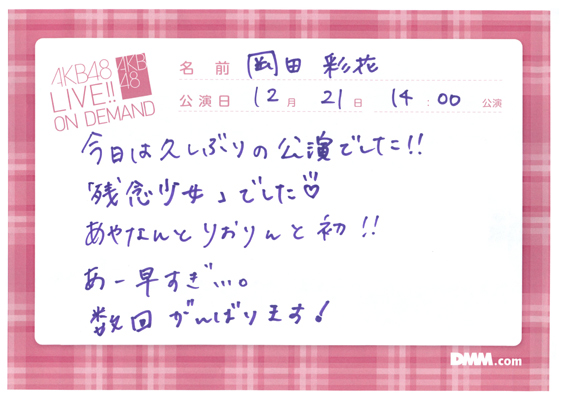 AKB48
LIVE!!
ON DEMAND
AKB
48
名前 岡田 彩花
公演日 12月 21日 14:00 公演
今日は久しぶりの公演でした!!
「残念少女」でした♡
あやなんとりおりんと初!!
あー早すぎ…。
数回がんばります!
DMM.com